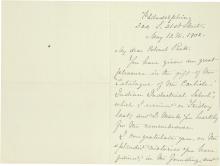 Philadelphia
324 S. 21st Street.
May 12th, 1902.
My dear Colonel Pratt:
You have given me great
pleasure in the gift of the
Catalogue of the Carlisle
Indian Industrial School,
which I received on Friday
last and I thank you heartily
for the remembrance.
I congratulate you on the
splendid success you have
gained in the founding